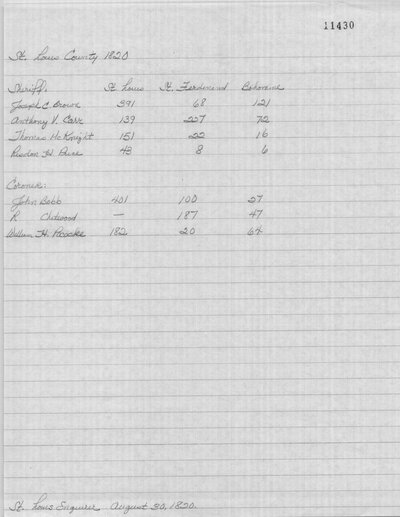 11430
St. Louis County 1820
Sheriff: St Louis St. Ferdinand Bohomme
Joseph C. Brown 391 68 121
Anthony V. Carr 139 227 72
Thomas McKnight 151 22 16
Risdon H. 43 8 6
Coroner:
John Bobb 401 100 27
R Chitwood — 187 47
William H. 182 20 64
St. Louis Enquirer August 30, 1820.